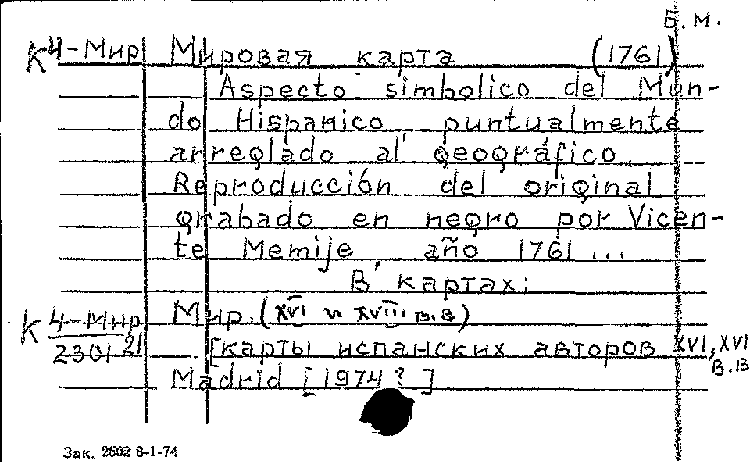 Б.М.
К4-Мир Мировая карта (1761)
Aspecto simbolico del Mun-
do Hispanico, puntualmente
arreglado al geográfico
Reproducción del original
grabado en negro por Vicen-
te Memije, año 1761 ...
В картах:
К 4-Мир Мир (XVI и XVIII в.в)
2301 21 [карты испанских авторов XVI, XVI
в.в
Madrid [1974?]
Зак. 2602 8-1-74